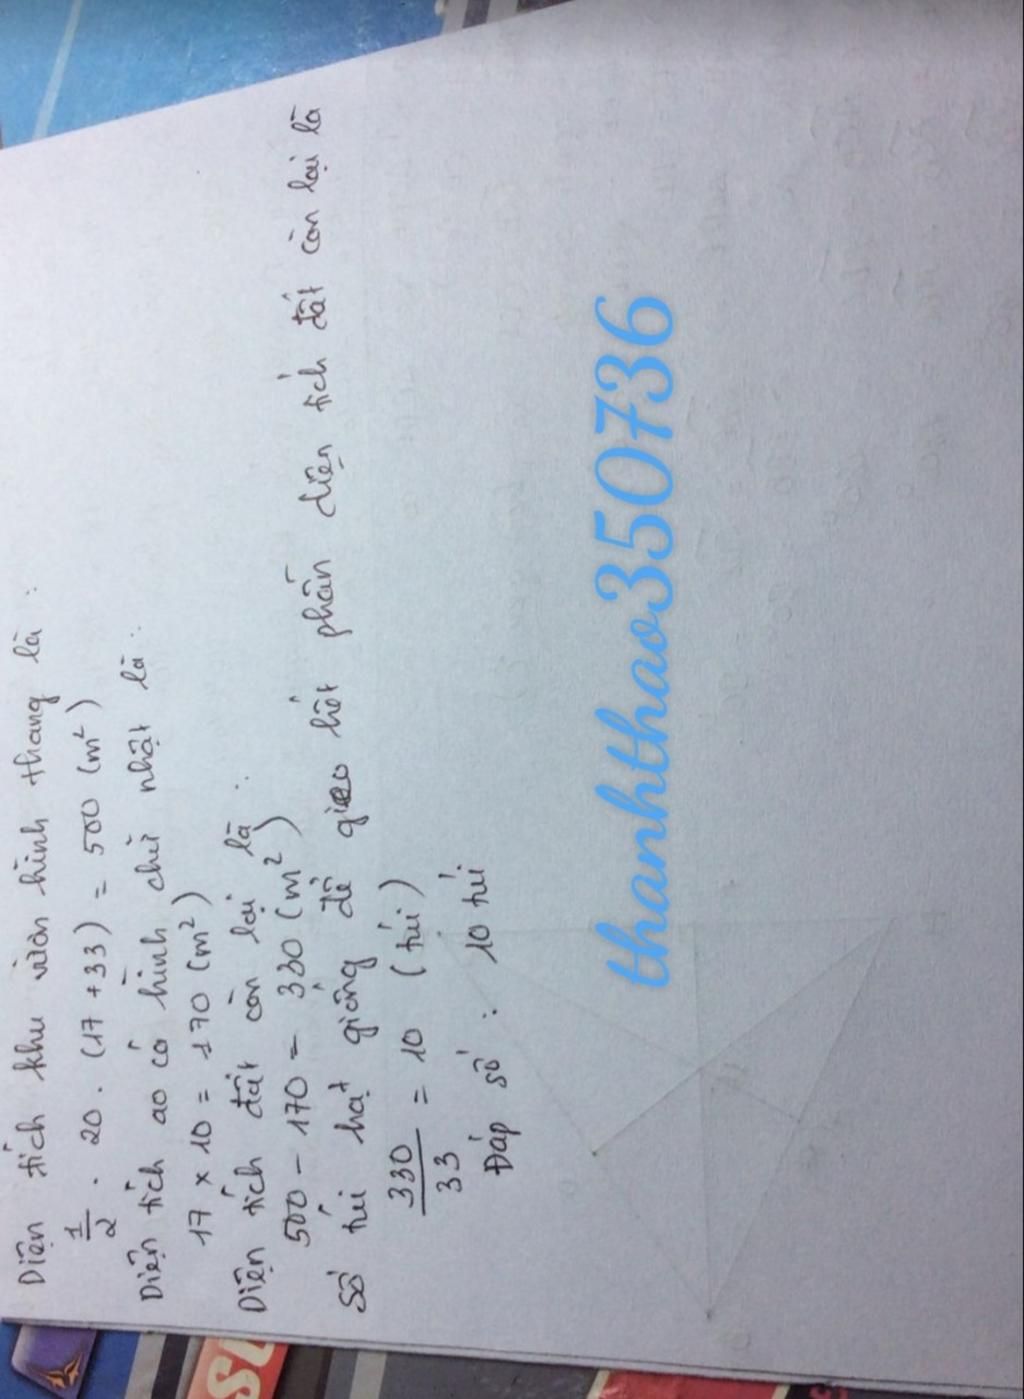 Diện tích khu vườn hình thang là :
1/2 . 20 . (17 + 33) = 500 (m²)
Diện tích ao có hình chữ nhật là :
17 x 10 = 170 (m²)
Diện tích đất còn lại là :
500 - 170 = 330 (m²)
Số túi hạt giống để gieo hết phần diện tích đất còn lại là
330/33 = 10 (túi)
Đáp số : 10 túi
thanhthao350736